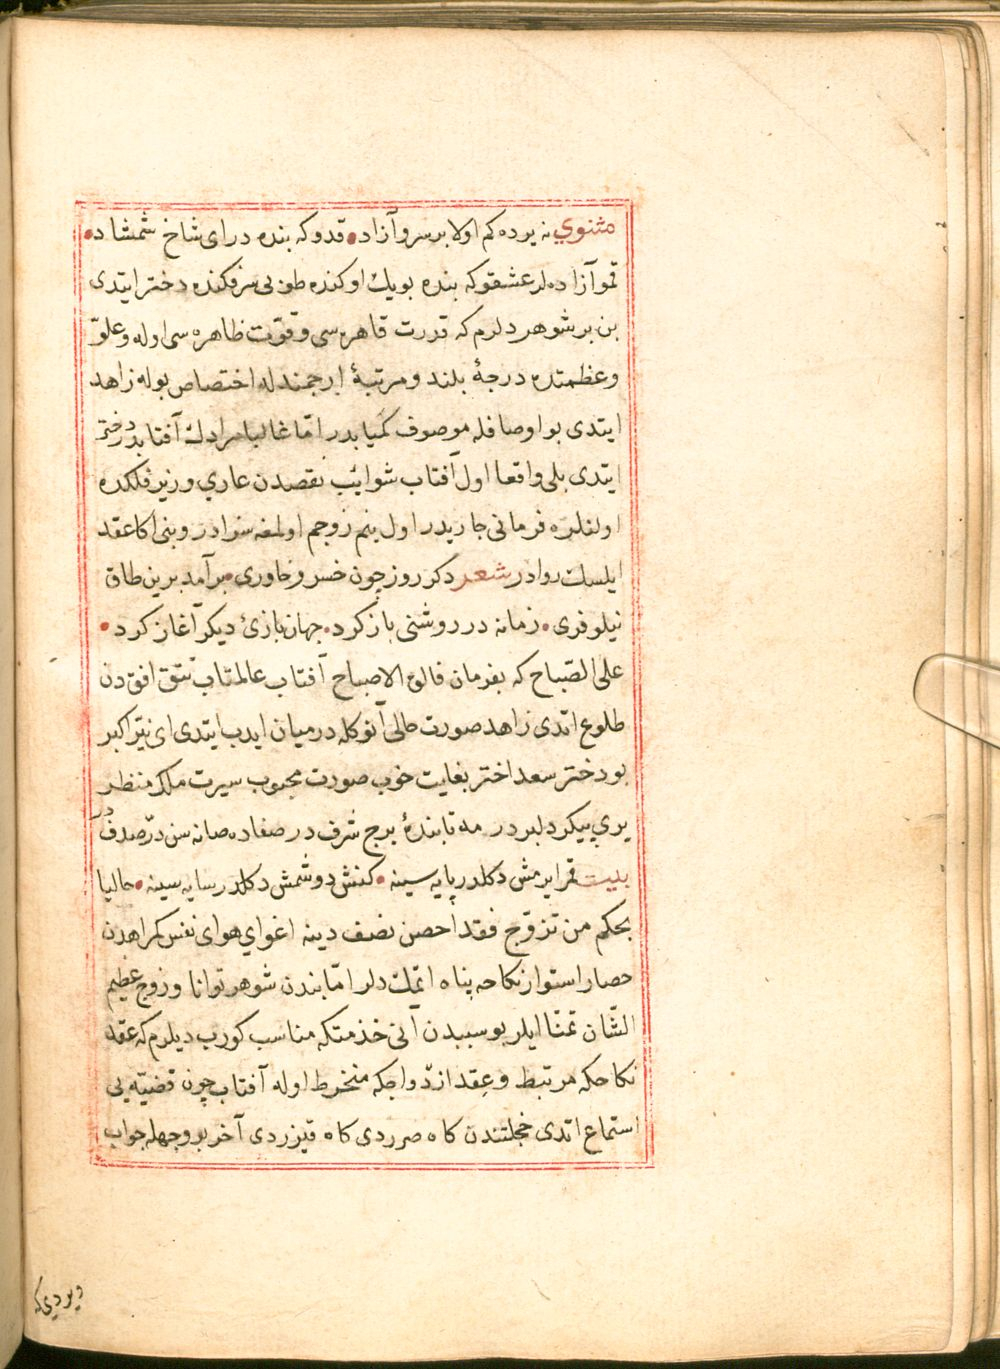 مثنوي نه يرده كم اولا بر سرو آزاد • قدوكه بنده در اى شاخ شمشاد •
قمو آزاده‌لر عشقوكه بنده بويك اوكنده طوبى سرفكنده دختر ايتدى
بن بر شوهر دلرم كه قدرت قاهره‌سى و قوّت ظاهره‌سى اوله و علوّ
و عظمتده درجهٔ بلند و مرتبهٔ ارجمندله اختصاص بوله زاهد
ايتدى بو اوصافله موصوف كميابدر امّا غالبا مرادك آفتابدر دختر
ايتدى بلى واقعا اول آفتاب شوائب نقصدن عاري و زير فلكده
اولنلره فرمانى جاريدر اول بنم زوجم اولمغه سزادر و بنى اكا عقد
ايلسك روادر شعر دكر روز چون خسرو خاورى • برآمد برين طاق
نيلوفرى • زمانه در روشنى باز كرد • جهان بازئ ديكر آغاز كرد •
على الصّباح كه بفرمان فالق الاصباح آفتاب عالمتاب تتق افق دن
طلوع اتدى زاهد صورت حالى آنوكله درميان ايدب ايتدى اى نيّر اكبر
بو دختر سعد اختر بغايت خوب صورت محبوب سيرت ملك منظر
پري پيكر دلبر در مه تابندهٔ برج شرف در صفاده صانه سن درّ صدف در
بيت قمر ايرمش دكلدر پايه سينه • كنش دوشمش دكلدر سايه سينه • حاليا
بحكم من تزوّج فقد احصن نصف دينه اغواي هواى نفس كمراهدن
حصار استوار نكاحه پناه اتمك دلر امّا بندن شوهر توانا و زوج عظيم
الشّان تمنّا ايلر بو سببدن آنى خذمتكه مناسب كورب ديلرم كه عقد
نكاحكه مرتبط و عِقد ازدواجكه منخرط اوله آفتاب چون قضيّه يى
استماع اتدى خجلتندن كاه صرردى كاه قيزردى آخر بو وجهله جواب
ويردى كه